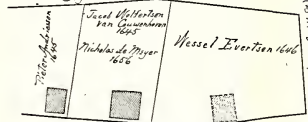 Pieter Andriessen
1645
Jacob Woltertsen
van Couwenhoven
1645
Nicholas de Meyer
1656
Wessel Evertsen 1646